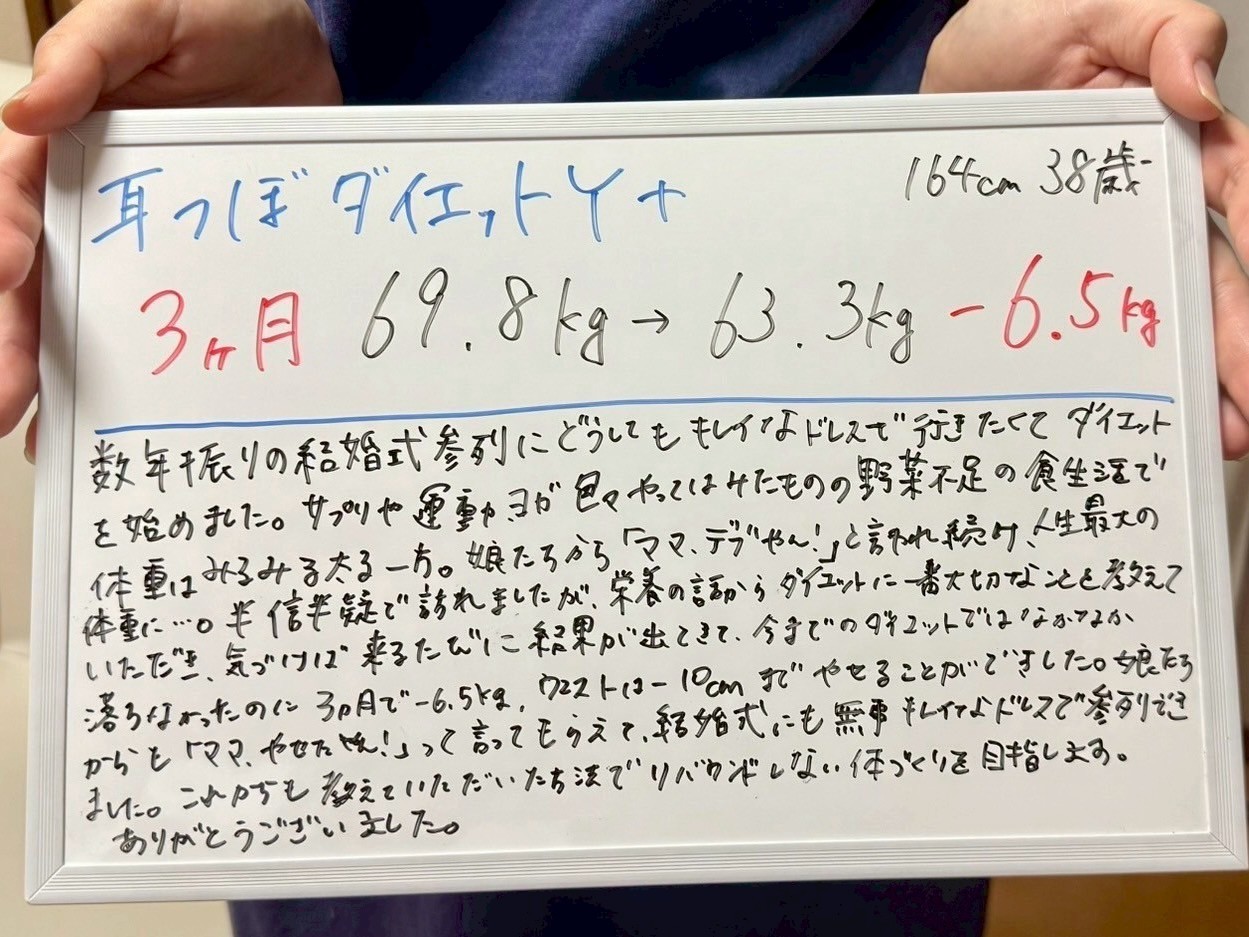 耳つぼダイエットY+
164cm 38歳
3ヶ月 69.8kg→63.3kg -6.5kg
数年振りの結婚式参列にどうしてもキレイなドレスで行きたくてダイエット
を始めました。サプリや運動、ヨガ色々やってはみたものの野菜不足の食生活で
体重はみるみる太る一方。娘たちから「ママ、デブやん!」と言われ続け、人生最大の
体重に…。半信半疑で訪れましたが、栄養の話からダイエットに一番大切なことを教えて
いただき、気づけば来るたびに結果が出てきて、今までのダイエットではなかなか
落ちなかったのに3ヵ月で-6.5kg、ウエストは-10cmまでやせることができました。娘たち
からも「ママ、やせたやん!」って言ってもらえて、結婚式にも無事キレイなドレスで参列でき
ました。これからも教えていただいた方法でリバウンドしない体づくりを目指します。
ありがとうございました。